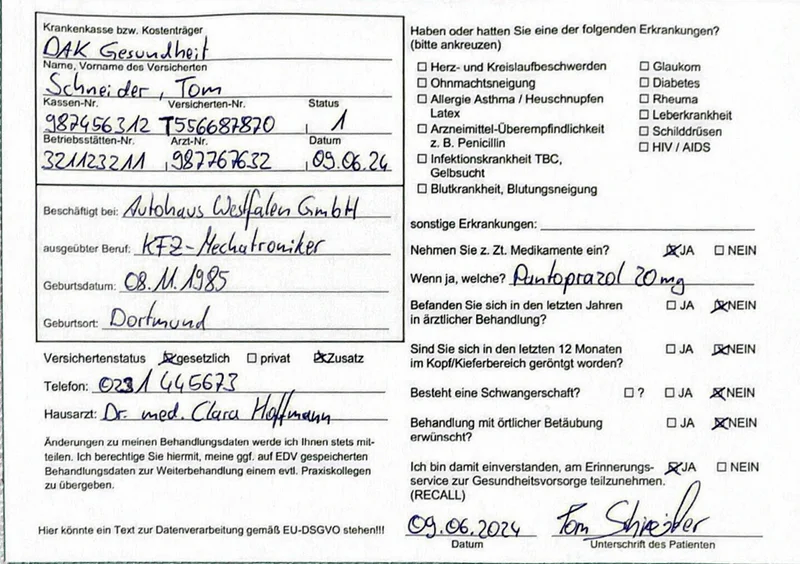 Krankenkasse bzw. Kostenträger
DAK Gesundheit
Name, Vorname des Versicherten
Schneider, Tom
Kassen-Nr. Versicherten-Nr. Status
987456312 T556687870 1
Betriebsstätten-Nr. Arzt-Nr. Datum
321123211 987767632 09.06.24
Beschäftigt bei: Autohaus Westfalen GmbH
ausgeübter Beruf: KFZ-Mechatroniker
Geburtsdatum: 08.11.1985
Geburtsort: Dortmund
Versichertenstatus ☒ gesetzlich ☐ privat ☒ Zusatz
Telefon: 0231 445673
Hausarzt: Dr. med. Clara Hoffmann
Änderungen zu meinen Behandlungsdaten werde ich Ihnen stets mit-
teilen. Ich berechtige Sie hiermit, meine ggf. auf EDV gespeicherten
Behandlungsdaten zur Weiterbehandlung einem evtl. Praxiskollegen
zu übergeben.
Hier könnte ein Text zur Datenverarbeitung gemäß EU-DSGVO stehen!!!
Haben oder hatten Sie eine der folgenden Erkrankungen?
(bitte ankreuzen)
☐ Herz- und Kreislaufbeschwerden ☐ Glaukom
☐ Ohnmachtsneigung ☐ Diabetes
☐ Allergie Asthma / Heuschnupfen ☐ Rheuma
Latex ☐ Leberkrankheit
☐ Arzneimittel-Überempfindlichkeit ☐ Schilddrüsen
z. B. Penicillin ☐ HIV / AIDS
☐ Infektionskrankheit TBC,
Gelbsucht
☐ Blutkrankheit, Blutungsneigung
sonstige Erkrankungen:
Nehmen Sie z. Zt. Medikamente ein? ☒ JA ☐ NEIN
Wenn ja, welche? Pantoprazol 20mg
Befanden Sie sich in den letzten Jahren ☐ JA ☒ NEIN
in ärztlicher Behandlung?
Sind Sie sich in den letzten 12 Monaten ☐ JA ☒ NEIN
im Kopf/Kieferbereich geröntgt worden?
Besteht eine Schwangerschaft? ☐ ? ☐ JA ☒ NEIN
Behandlung mit örtlicher Betäubung ☐ JA ☒ NEIN
erwünscht?
Ich bin damit einverstanden, am Erinnerungs- ☒ JA ☐ NEIN
service zur Gesundheitsvorsorge teilzunehmen.
(RECALL)
09.06.2024 Tom Schneider
Datum Unterschrift des Patienten